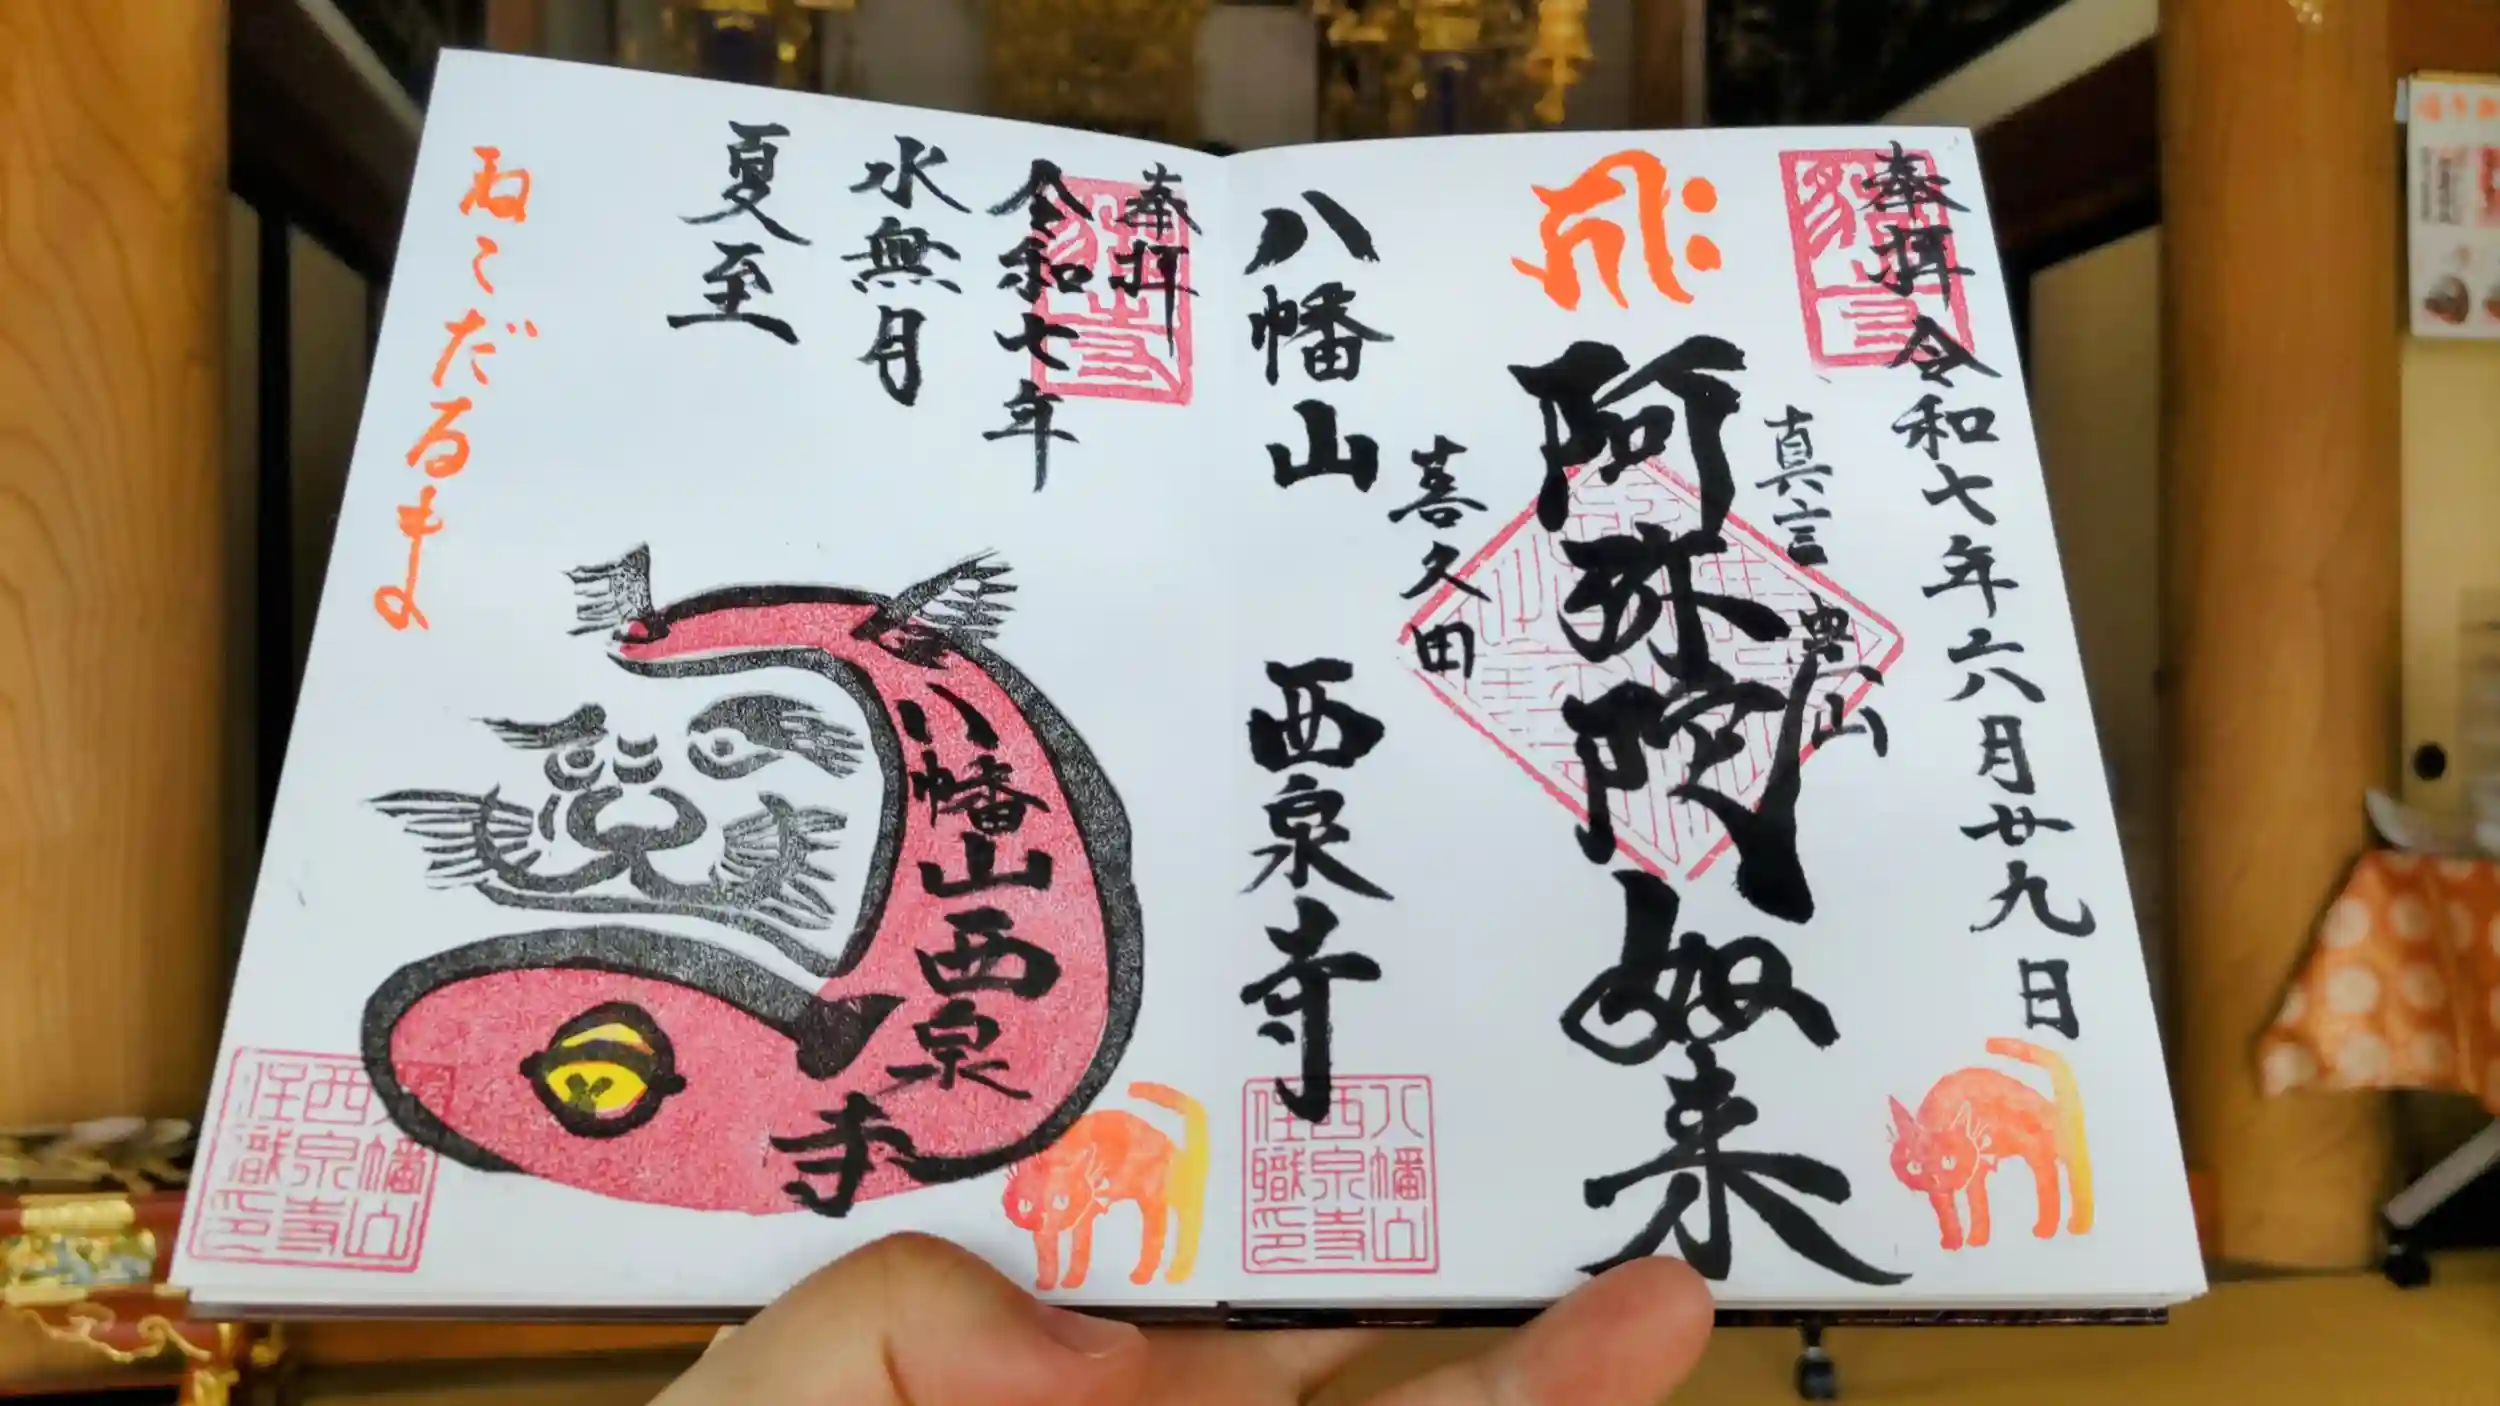 奉拝 令和七年六月廿九日
真言 豊山
阿弥陀如来
喜久田
八幡山 西泉寺
八幡山
西泉寺
住職印
奉拝
令和七年
水無月
夏至
八幡山西泉寺
ねこだるまの
八幡山
西泉寺
住職印